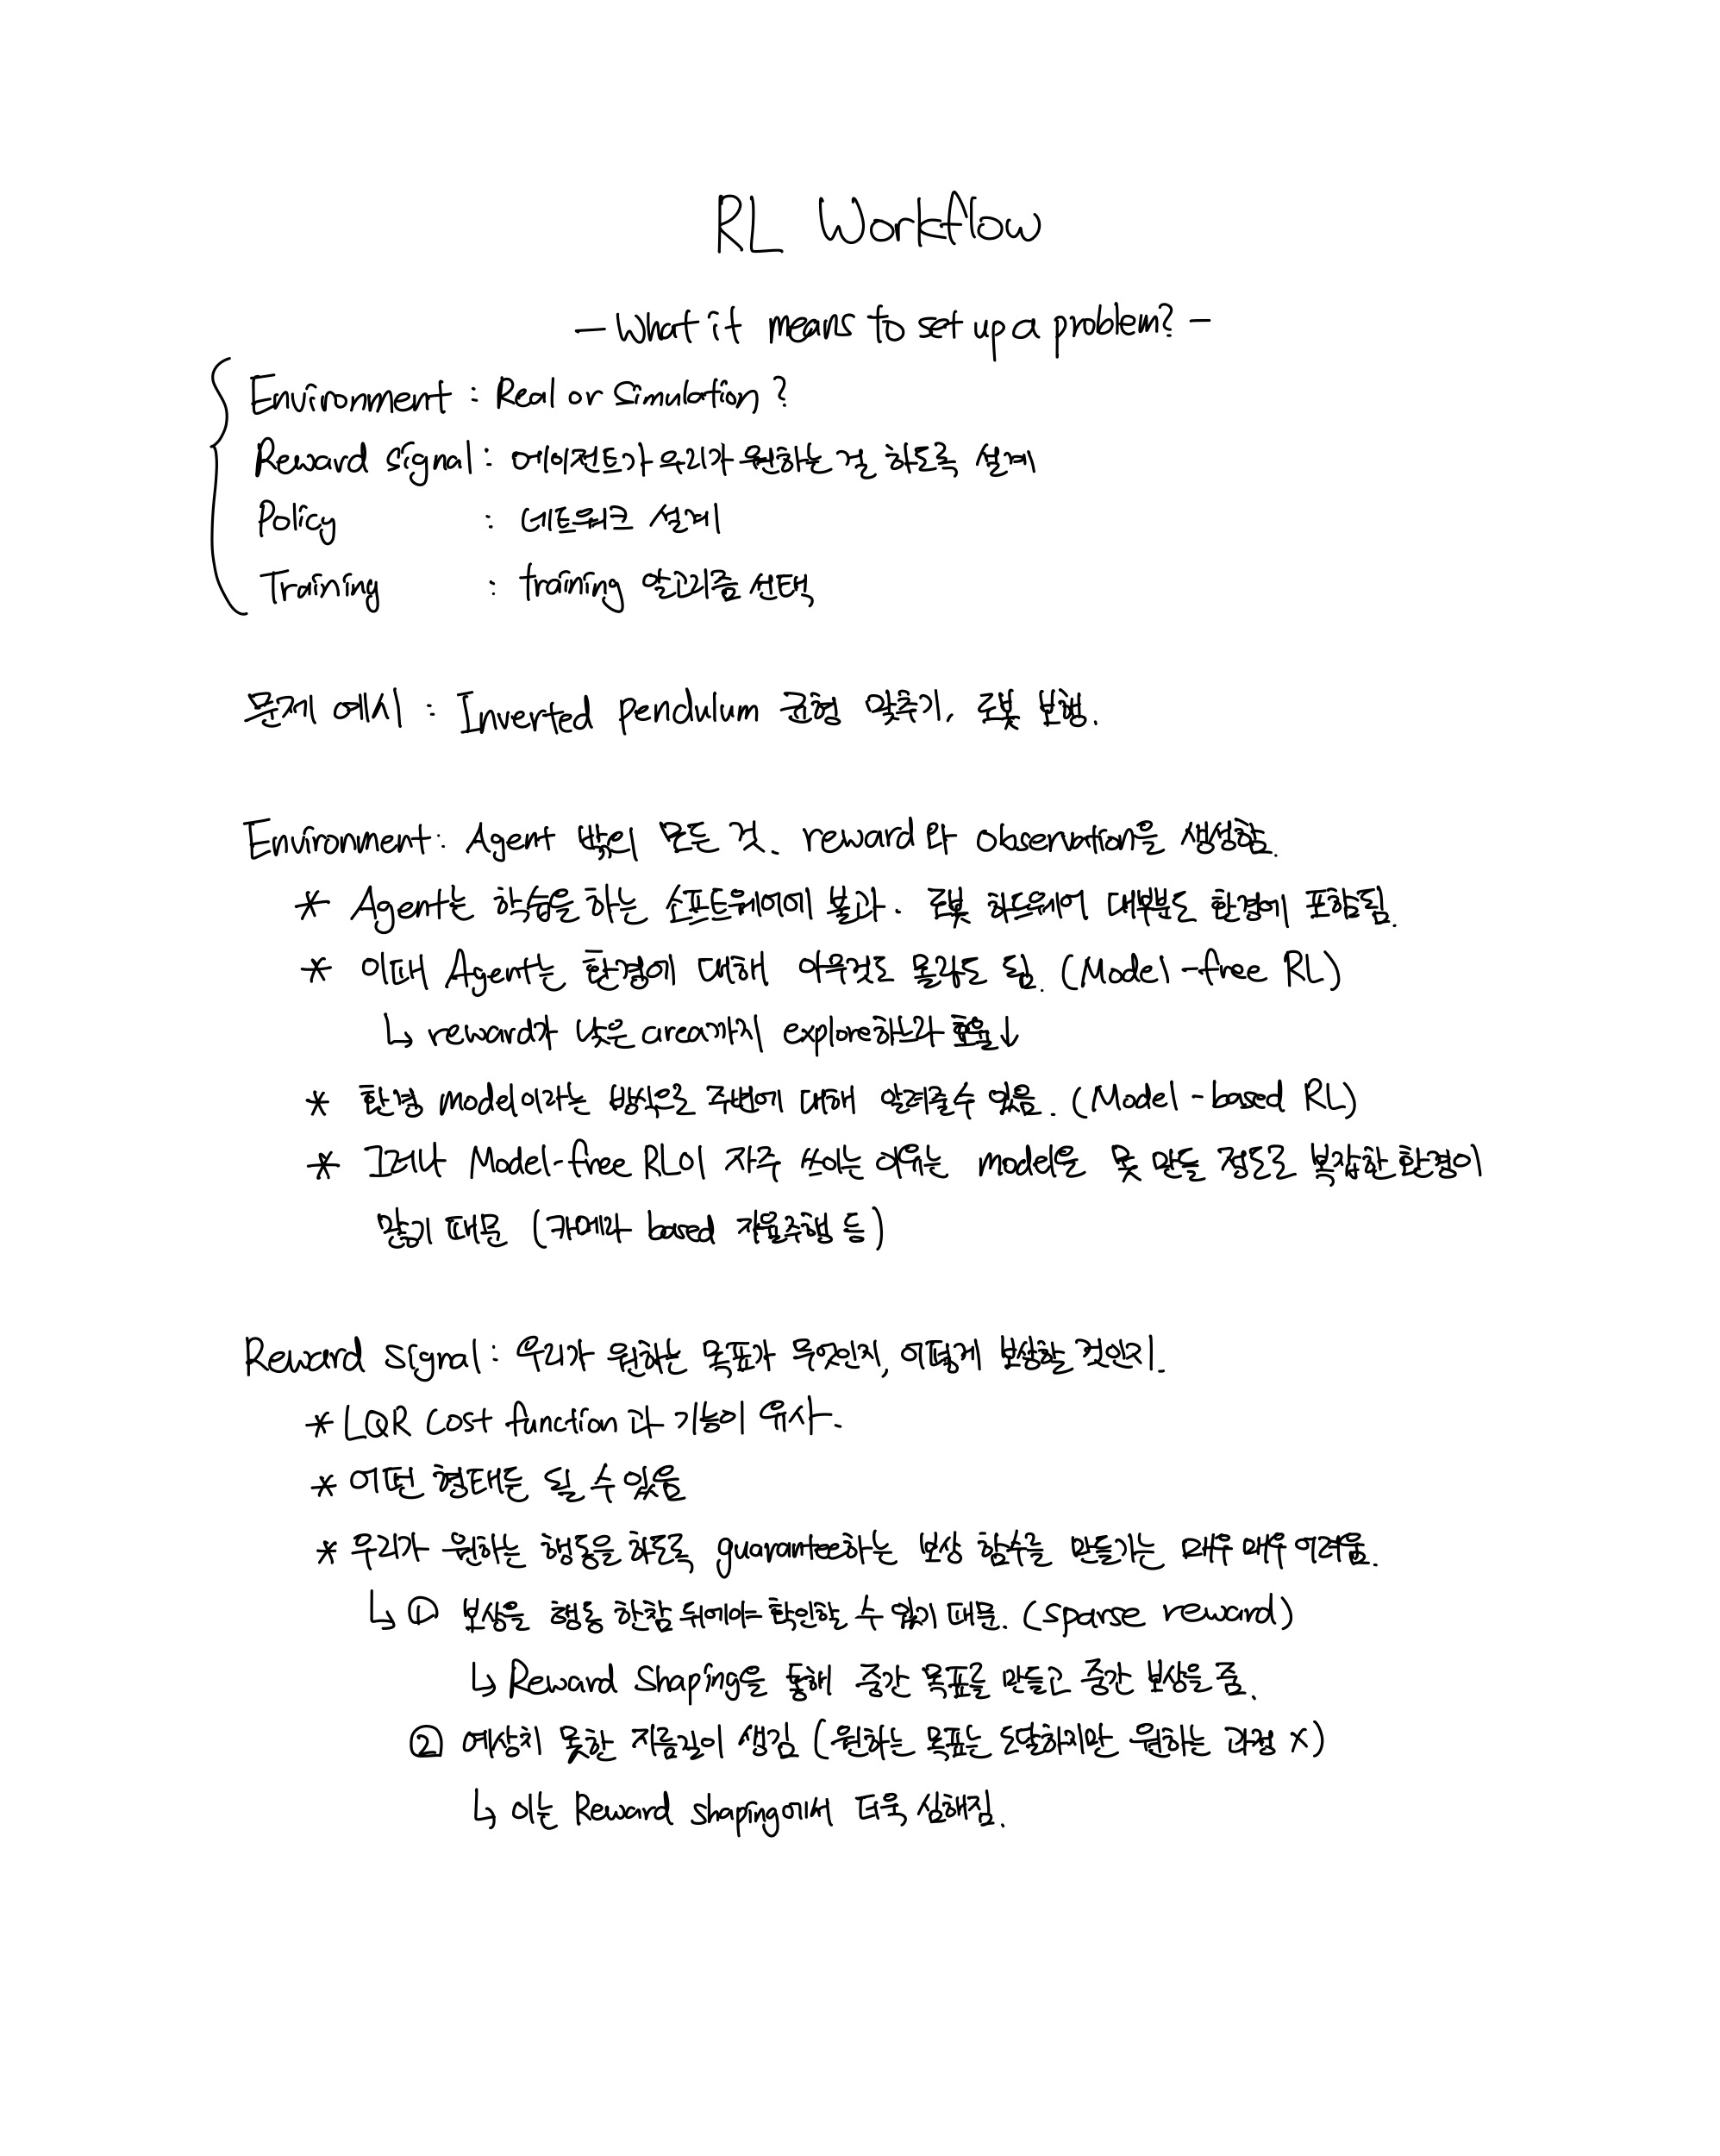 RL Workflow
- What it means to set up a problem? -
Environment : Real or Simulation?
Reward signal : 에이전트가 우리가 원하는 걸 하도록 설계
Policy : 네트워크 설계
Training : training 알고리즘 선택
문제 예시 : Inverted pendulum 균형 맞추기, 로봇 보행.
Environment : Agent 밖의 모든 것. reward와 observation을 생성함.
* Agent는 학습을 하는 소프트웨어에 불과. 로봇 하드웨어 대부분도 환경에 포함됨.
* 이때 Agent는 환경에 대해 아무것도 몰라도 됨. (Model-free RL)
↳ reward가 낮은 area까지 explore하느라 효율↓
* 환경 model이라는 방식으로 주변에 대해 알려줄 수 있음. (Model-based RL)
* 그러나 Model-free RL이 자주 쓰이는 이유는 model을 못 만들 정도로 복잡한 환경이
많기 때문 (카메라 based 자율주행 등)
Reward signal : 우리가 원하는 목표가 무엇인지, 어떻게 보상할 것인지.
* LQR Cost function과 기능이 유사.
* 어떤 형태든 될 수 있음
* 우리가 원하는 행동을 하도록 guarantee하는 보상 함수를 만들기는 매우 매우 어려움.
↳ ① 보상을 행동 한참 뒤에야 확인할 수 있기 때문. (sparse reward)
↳ Reward Shaping을 통해 중간 목표를 만들고 중간 보상을 줌.
② 예상치 못한 지름길이 생김 (원하는 목표는 도달하지만 원하는 과정 X)
↳ 이는 Reward shaping에서 더욱 심해짐.